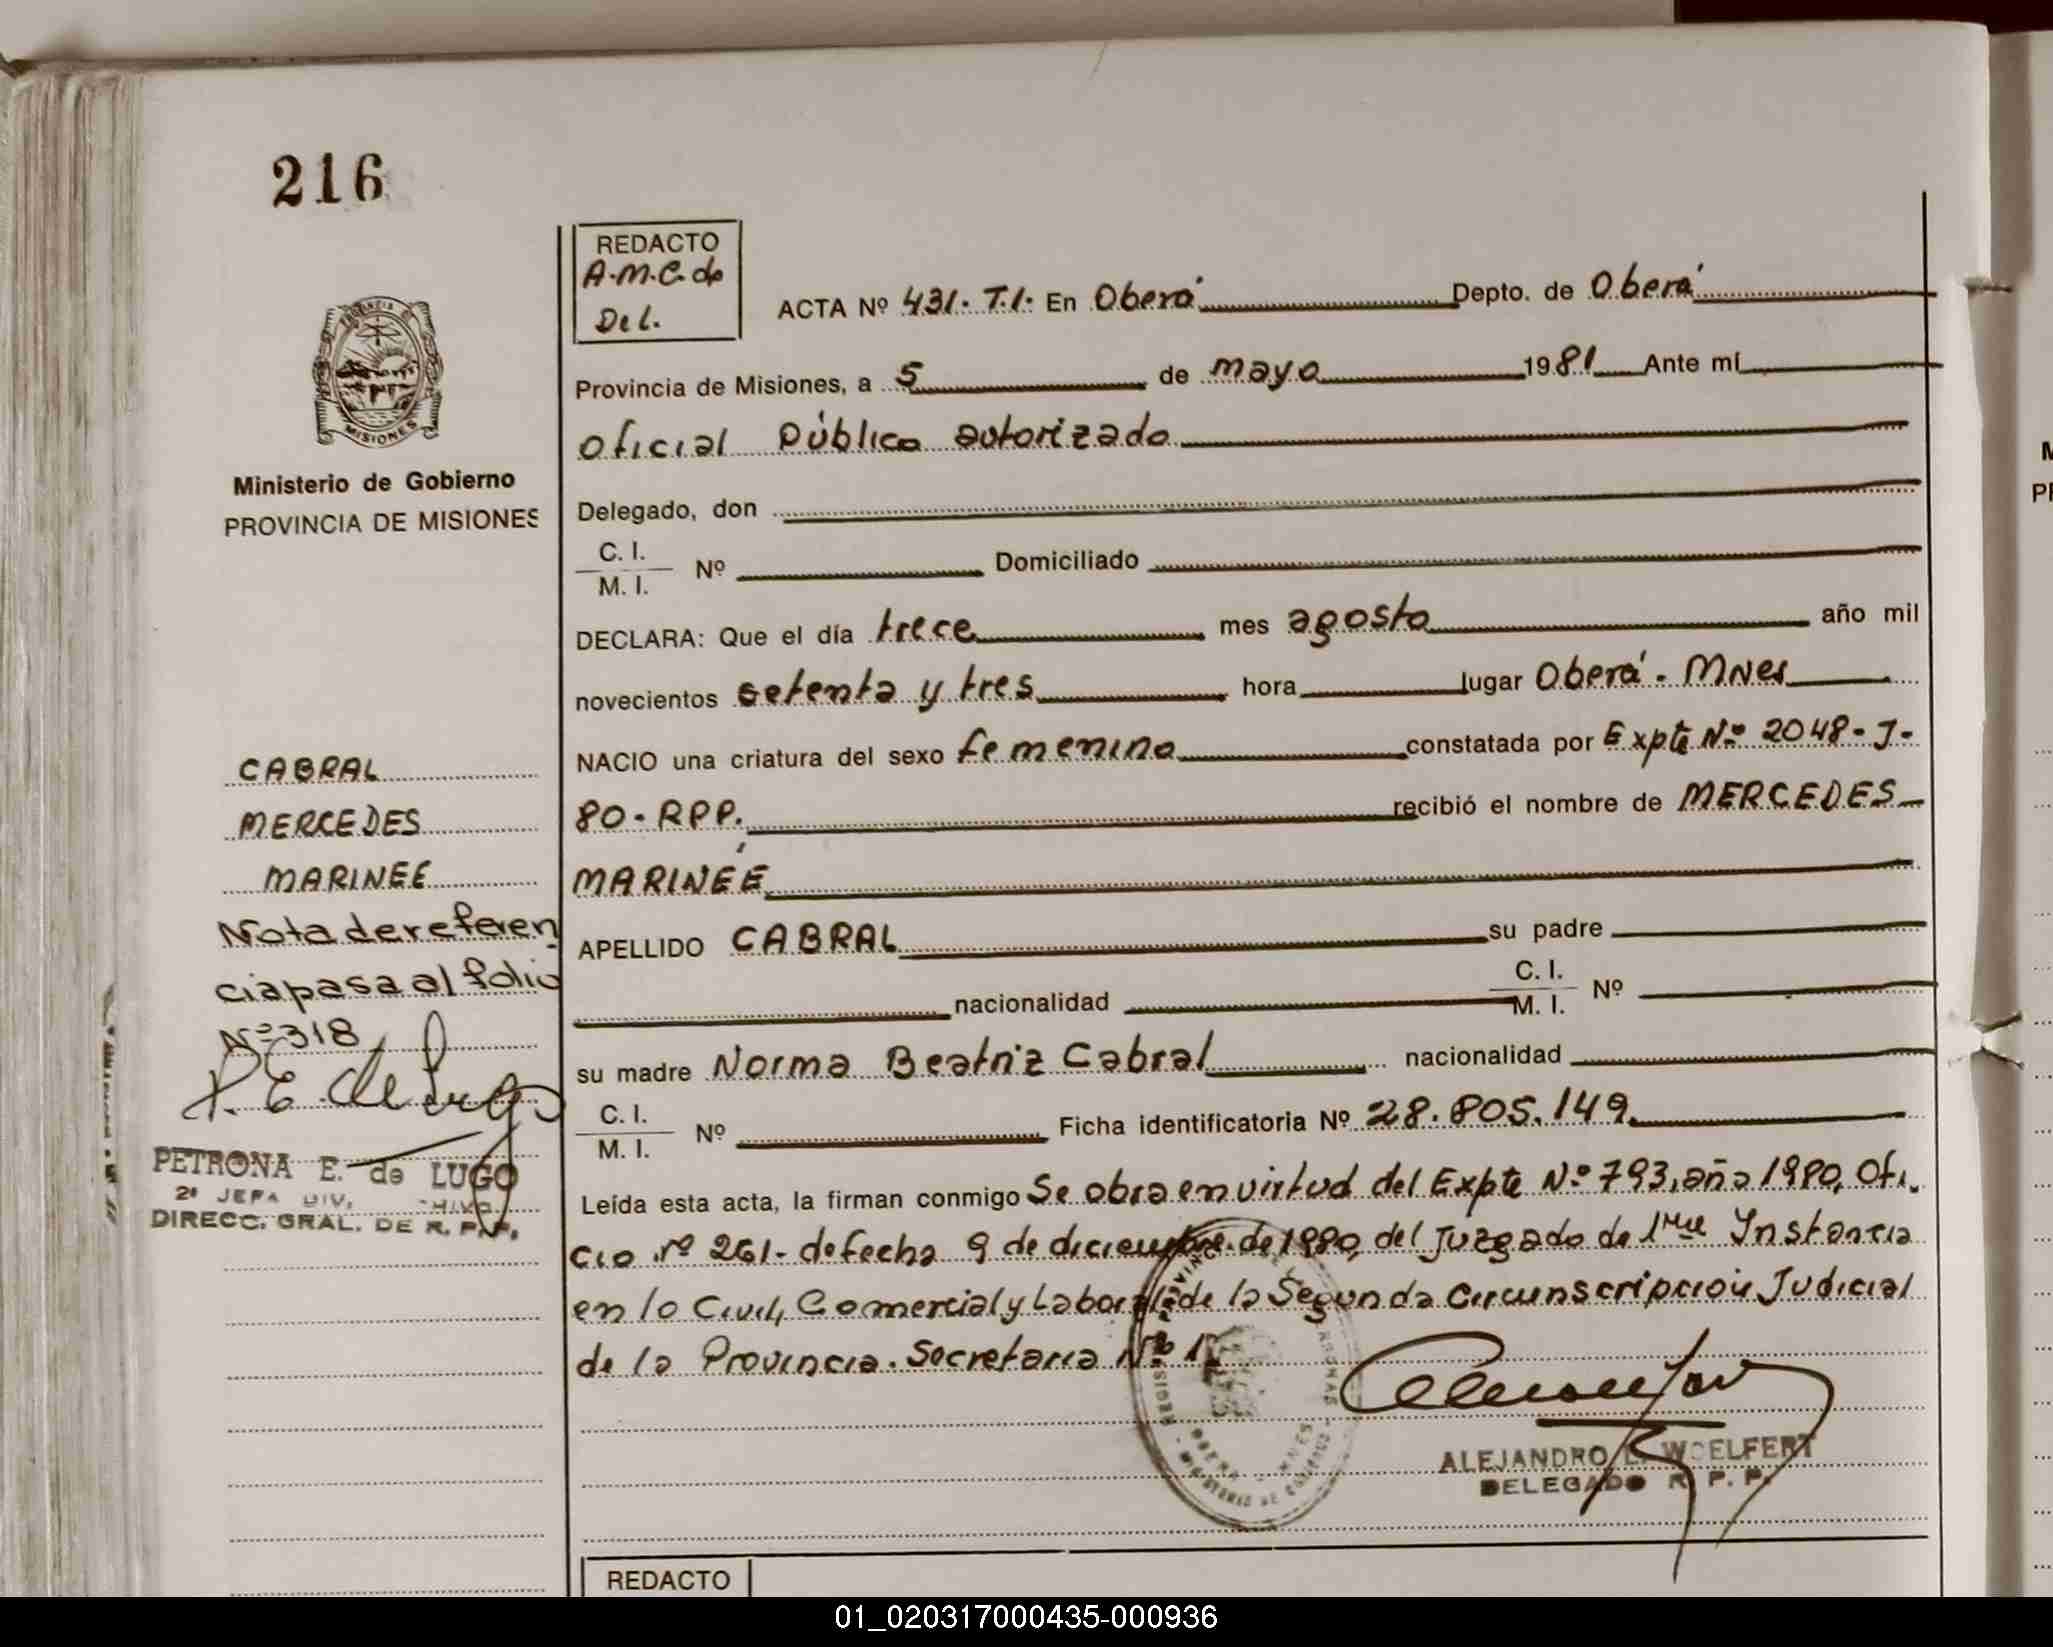 216
REDACTO
A.M.C. de
Del.
ACTA Nº 431. T.I. En Oberá Depto. de Oberá
Provincia de Misiones, a 5 de mayo 1981 Ante mí
Oficial Público autorizado
Delegado, don
C. I.
M. I. Nº Domiciliado
DECLARA: Que el día trece mes agosto año mil
novecientos setenta y tres hora lugar Oberá. MNes
NACIO una criatura del sexo femenino constatada por Expte Nº 2048-J-
80-RPP. recibió el nombre de MERCEDES
MARINÉE
APELLIDO CABRAL su padre
nacionalidad C. I.
M. I. Nº
su madre Norma Beatriz Cabral nacionalidad
C. I.
M. I. Nº Ficha identificatoria Nº 28.805.149
Leída esta acta, la firman conmigo Se obra en virtud del Expte Nº 793, año 1980, Ofi-
cio nº 261- de fecha 9 de diciembre de 1980, del Juzgado de 1ra Instancia
en lo Civil, Comercial y Laboral de la Segunda Circunscripción Judicial
de la Provincia. Secretaria Nº 1.
ALEJANDRO L. WOELFERT
DELEGADO R. P. P.
MISIONES
Ministerio de Gobierno
PROVINCIA DE MISIONES
CABRAL
MERCEDES
MARINEE
Nota de referen
cia pasa al folio
Nº 318
P. E. de Lugo
PETRONA E. de LUGO
2ª JEFA DIV.
DIRECC. GRAL. DE R. P. P.
REDACTO
01_020317000435-000936